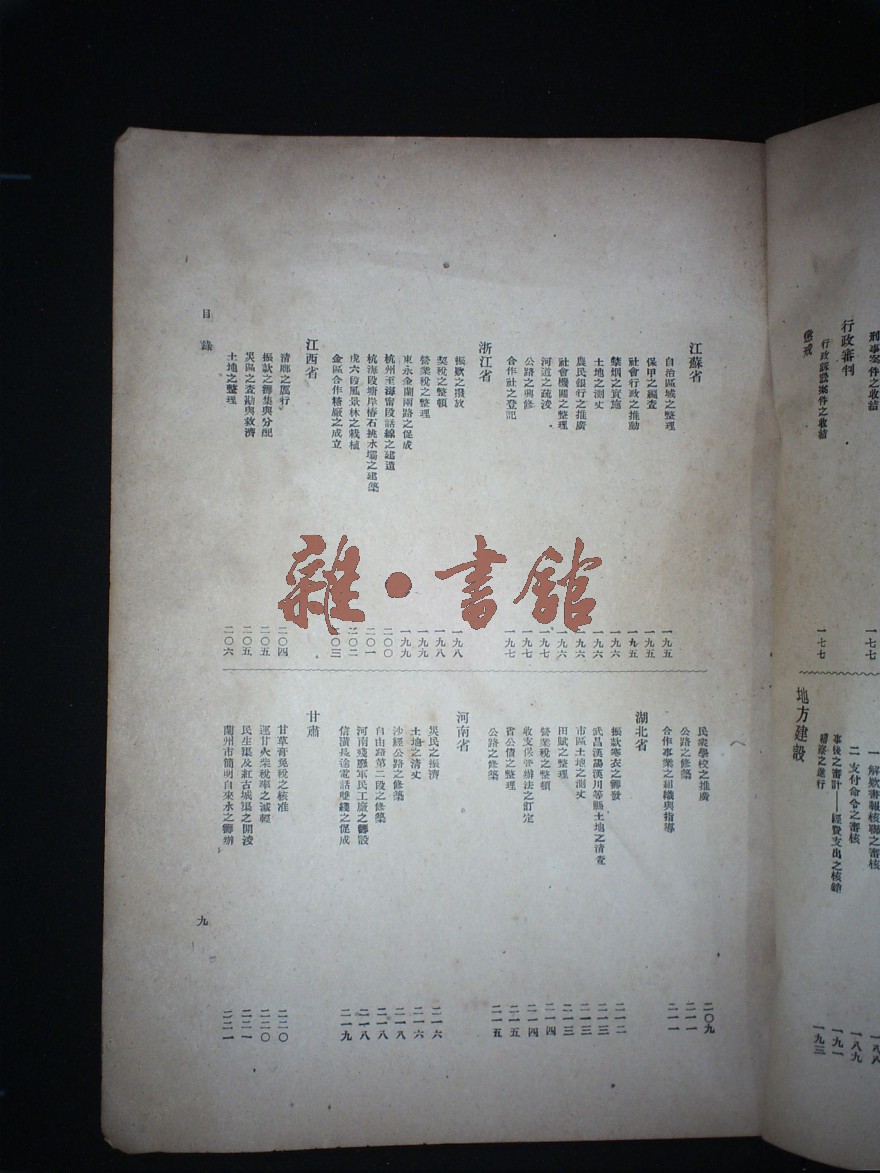 刑事案件之收結
一七七
行政審判
行政訴訟案件之收結
一七七
懲戒
一 解款書報核聯之審核
一八八
二 支付命令之審核
一八九
事後之審計——經費支出之核銷
一九一
稽察之進行
一九三
地方建設
江蘇省
自治區域之整理
一九五
保甲之編查
一九五
社會行政之推動
一九五
禁烟之實施
一九六
土地之測丈
一九六
農民銀行之推廣
一九六
社會機關之整理
一九六
河道之疏浚
一九七
公路之興修
一九七
合作社之登記
一九七
浙江省
振款之撥放
一九八
契稅之整頓
一九八
營業稅之整理
一九九
東永金蘭兩路之促成
一九九
杭州至海甯段話線之建造
二〇〇
杭海段塘岸樁石挑水壩之建築
二〇一
戊六段風景林之栽植
二〇二
金區合作糖廠之成立
二〇三
江西省
清鄉之厲行
二〇四
振款之籌集與分配
二〇五
災區之查勘與救濟
二〇五
土地之整理
二〇六
民衆學校之推廣
二〇九
公路之修築
二一一
合作事業之組織與指導
二一一
湖北省
振款寒衣之籌發
二一二
武昌漢陽漢川等縣土地之清查
二一三
市區土地之測丈
二一三
田賦之整理
二一三
營業稅之整頓
二一四
收支保管辦法之訂定
二一四
省公債之整理
二一五
公路之修築
二一五
河南省
災民之振濟
二一六
土地之清丈
二一六
沙經公路之修築
二一八
自由路第二段之修築
二一八
河南殘廢軍民工廠之籌設
二一八
信潢長途電話雙綫之促成
二一九
甘肅
甘草膏免稅之核准
二二〇
運甘火柴稅率之減輕
二二〇
民生渠及紅古城渠之開浚
二二一
蘭州市簡明自來水之籌辦
二二一
目錄
九
雜·書館